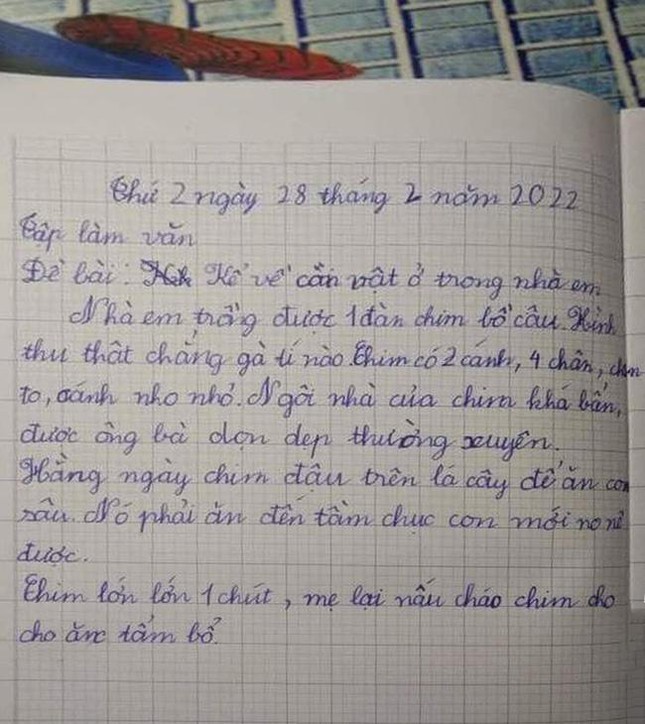 Thứ 2 ngày 28 tháng 2 năm 2022
Tập làm văn
Đề bài: Kể về cồn vật ở trong nhà em
Nhà em trồng được 1 đàn chim bồ câu. Hình
thu thật chẳng gà tí nào. Chim có 2 cánh, 4 chân, chân
to, cánh nho nhỏ. Ngôi nhà của chim khá bẩn,
được ông bà dọn dẹp thường xuyên.
Hằng ngày chim đậu trên lá cây để ăn con
sâu. Nó phải ăn đến tầm chục con mới no nê
được.
Chim lớn lớn 1 chút, mẹ lại nấu cháo chim cho
cho ăn tẩm bổ.